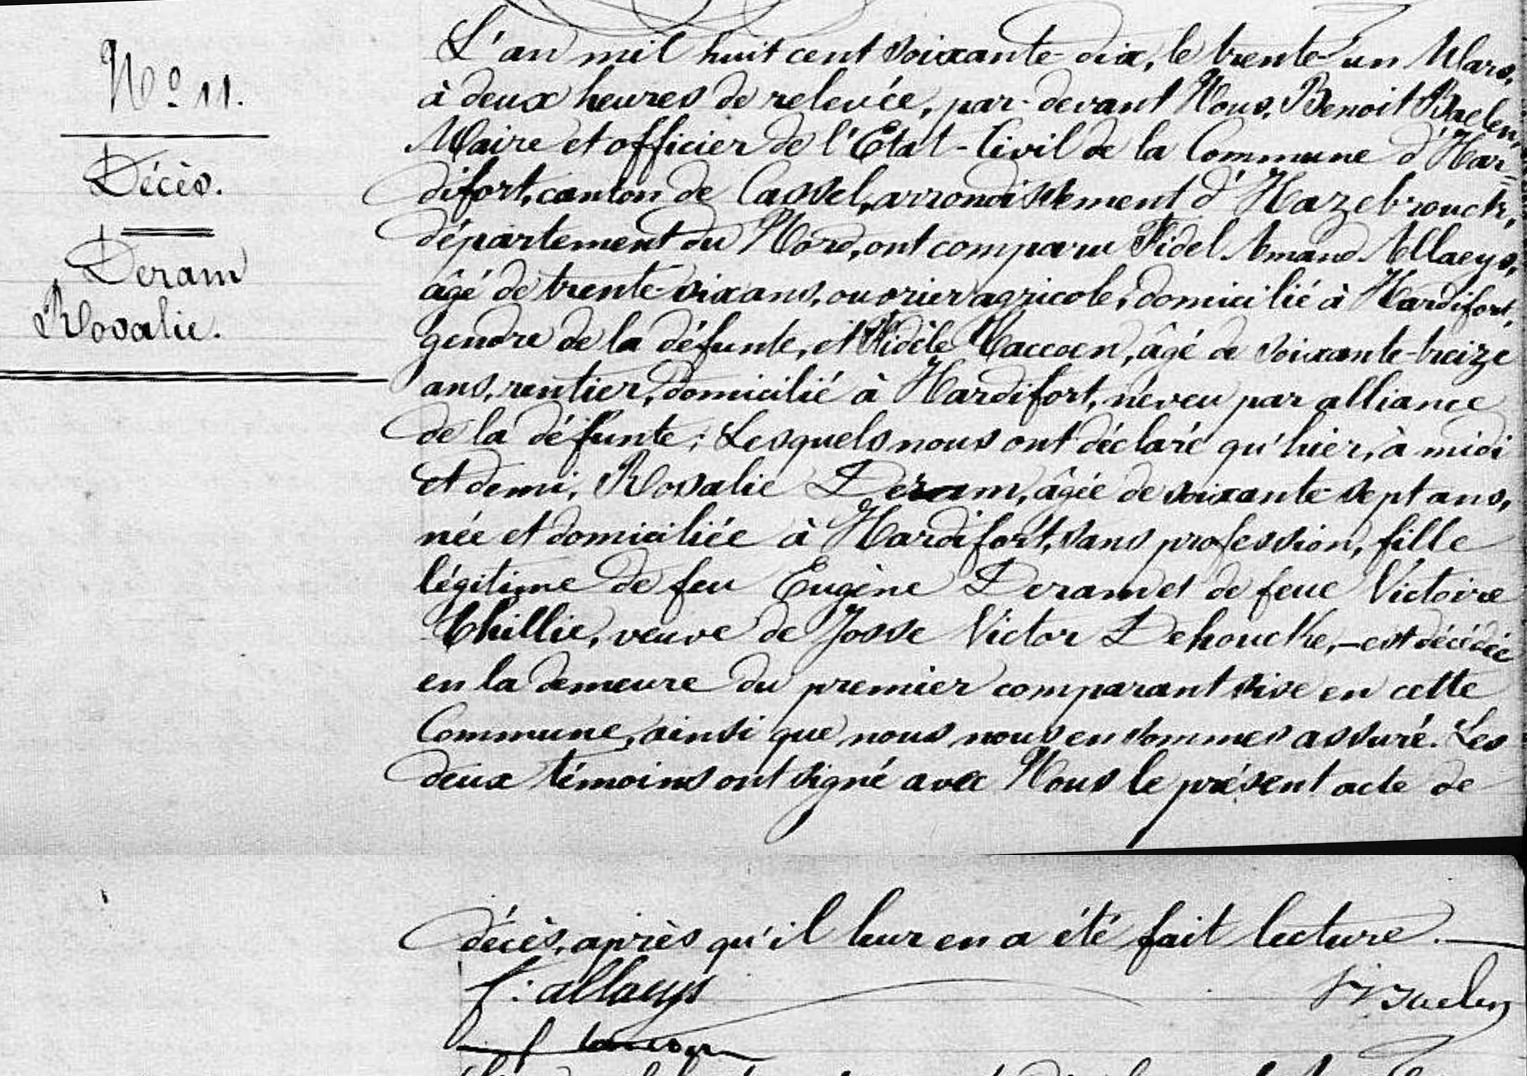 N° 11.
Décès.
Deram
Rosalie.
L'an mil huit cent soixante-dix, le trente-un Mars,
à deux heures de relevée, par-devant Nous, Benoit Baelen,
Maire et officier de l'Etat-Civil de la Commune d'Har-
difort, canton de Cassel, arrondissement d'Hazebrouck,
département du Nord, ont comparu Fidel Amand Allaeys,
âgé de trente-six ans, ouvrier agricole, domicilié à Hardifort,
gendre de la défunte, et Fidèle Maccoen, âgé de soixante-treize
ans, rentier, domicilié à Hardifort, néveu par alliance
de la défunte; Lesquels nous ont déclaré qu'hier, à midi
et demi, Rosalie Deram, âgée de soixante-sept ans,
née et domiciliée à Hardifort, sans profession, fille
légitime de feu Eugène Deram et de feue Victoire
Chillie, veuve de Josse Victor Dehoucke, - est décédée
en la demeure du premier comparant sise en cette
Commune, ainsi que nous nous en sommes assuré. Les
deux témoins ont signé avec Nous le présent acte de
décès, après qu'il leur en a été fait lecture.
f: allaeys
Baelen